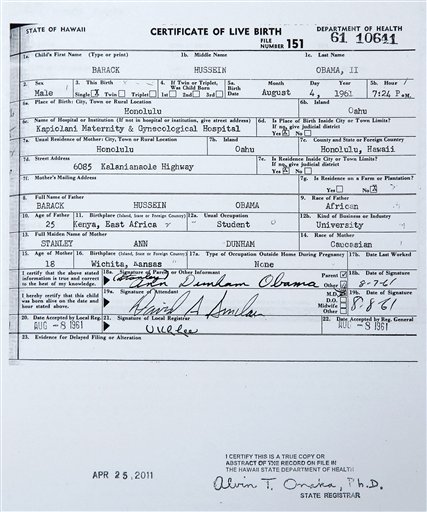 STATE OF HAWAII CERTIFICATE OF LIVE BIRTH DEPARTMENT OF HEALTH
FILE NUMBER 151 61 10641
1a. Child's First Name (Type or print) 1b. Middle Name 1c. Last Name
BARACK HUSSEIN OBAMA, II
2. Sex 3. This Birth 4. If Twin or Triplet, Was Child Born 5a. Birth Date Month Day Year 5b. Hour
Male Single X Twin Triplet 1st 2nd 3rd August 4, 1961 7:24 P.M.
6a. Place of Birth: City, Town or Rural Location 6b. Island
Honolulu Oahu
6c. Name of Hospital or Institution (If not in hospital or institution, give street address) 6d. Is Place of Birth Inside City or Town Limits? If no, give judicial district
Kapiolani Maternity & Gynecological Hospital Yes X No
7a. Usual Residence of Mother: City, Town or Rural Location 7b. Island 7c. County and State or Foreign Country
Honolulu Oahu Honolulu, Hawaii
7d. Street Address 7e. Is Residence Inside City or Town Limits? If no, give judicial district
6085 Kalanianaole Highway Yes X No
7f. Mother's Mailing Address 7g. Is Residence on a Farm or Plantation?
Yes No X
8. Full Name of Father 9. Race of Father
BARACK HUSSEIN OBAMA African
10. Age of Father 11. Birthplace (Island, State or Foreign Country) 12a. Usual Occupation 12b. Kind of Business or Industry
25 Kenya, East Africa Student University
13. Full Maiden Name of Mother 14. Race of Mother
STANLEY ANN DUNHAM Caucasian
15. Age of Mother 16. Birthplace (Island, State or Foreign Country) 17a. Type of Occupation Outside Home During Pregnancy 17b. Date Last Worked
18 Wichita, Kansas None
I certify that the above stated information is true and correct to the best of my knowledge. 18a. Signature of Parent or Other Informant Parent Other 18b. Date of Signature
(Stanley) Ann Dunham Obama 8-7-61
I hereby certify that this child was born alive on the date and hour stated above. 19a. Signature of Attendant M.D. X D.O. Midwife Other 19b. Date of Signature
David A Sinclair 8-8-61
20. Date Accepted by Local Reg. 21. Signature of Local Registrar 22. Date Accepted by Reg. General
AUG -8 1961 U K Lee AUG -8 1961
23. Evidence for Delayed Filing or Alteration
APR 25, 2011
I CERTIFY THIS IS A TRUE COPY OR
ABSTRACT OF THE RECORD ON FILE IN
THE HAWAII STATE DEPARTMENT OF HEALTH
Alvin T. Onaka, Ph.D.
STATE REGISTRAR